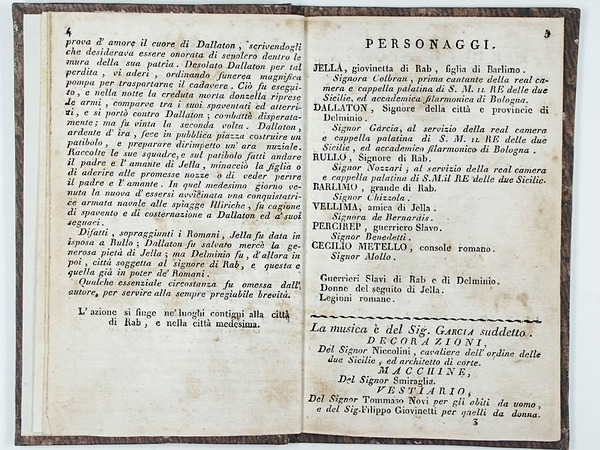 4
prova d' amore il cuore di Dallaton, scrivendogli
che desiderava essere onorata di sepolcro dentro le
mura della sua patria. Desolato Dallaton per tal
perdita, vi aderì, ordinando funerea magnifica
pompa per trasportarne il cadavere. Ciò fu esegui-
to, e nella notte la creduta morta donzella riprese
le armi, comparve tra i suoi spaventati ed atterri-
ti, e si portò contro Dallaton; combattè disperata-
mente; ma fu vinta la seconda volta. Dallaton,
ardente d' ira, fece in pubblica piazza costruire un
patibolo, e preparare dirimpetto un' ara nuziale.
Raccolte le sue squadre, e sul patibolo fatti andare
il padre e l' amante di Jella, minacciò la figlia o
di aderire alle promesse nozze o di veder perire
il padre e l' amante. In quel medesimo giorno ve-
nuta la nuova d' essersi avvicinata una conquistatri-
ce armata navale alle spiagge Illiriche, fu cagione
di spavento e di costernazione a Dallaton ed a' suoi
seguaci.
Difatti, sopraggiunti i Romani, Jella fu data in
isposa a Rullo; Dallaton fu salvato mercè la ge-
nerosa pietà di Jella; ma Delminio fu, d'allora in
poi, città soggetta al signore di Rab, e questa e
quella già in poter de' Romani.
Qualche essenziale circostanza fu omessa dall'
autore, per servire alla sempre pregiabile brevità.
L' azione si finge ne' luoghi contigui alla città
di Rab, e nella città medesima.
5
PERSONAGGI.
JELLA, giovinetta di Rab, figlia di Barlimo.
Signora Colbran, prima cantante della real ca-
mera e cappella palatina di S. M. IL RE delle due
Sicilie, ed accademica filarmonica di Bologna.
DALLATON, Signore della città e provincie di
Delminio.
Signor Garcia, al servizio della real camera
e cappella palatina di S. M. IL RE delle due
Sicilie, ed accademico filarmonico di Bologna.
RULLO, Signore di Rab.
Signor Nozzari, al servizio della real camera
e cappella palatina di S.M.il RE delle due Sicilie.
BARLIMO, grande di Rab.
Signor Chizzola.
VELLIMA, amica di Jella.
Signora de Bernardis.
PERCIREP, guerriero Slavo.
Signor Benedetti.
CECILIO METELLO, console romano.
Signor Mollo.
Guerrieri Slavi di Rab e di Delminio.
Donne del seguito di Jella.
Legioni romane.
La musica è del Sig. GARCIA suddetto.
DECORAZIONI,
Del Signor Niccolini, cavaliere dell' ordine delle
due Sicilie, ed architetto di corte.
MACCHINE,
Del Signor Smiraglia.
VESTIARIO,
Del Signor Tommaso Novi per gli abiti da uomo,
e del Sig. Filippo Giovinetti per quelli da donna.
3